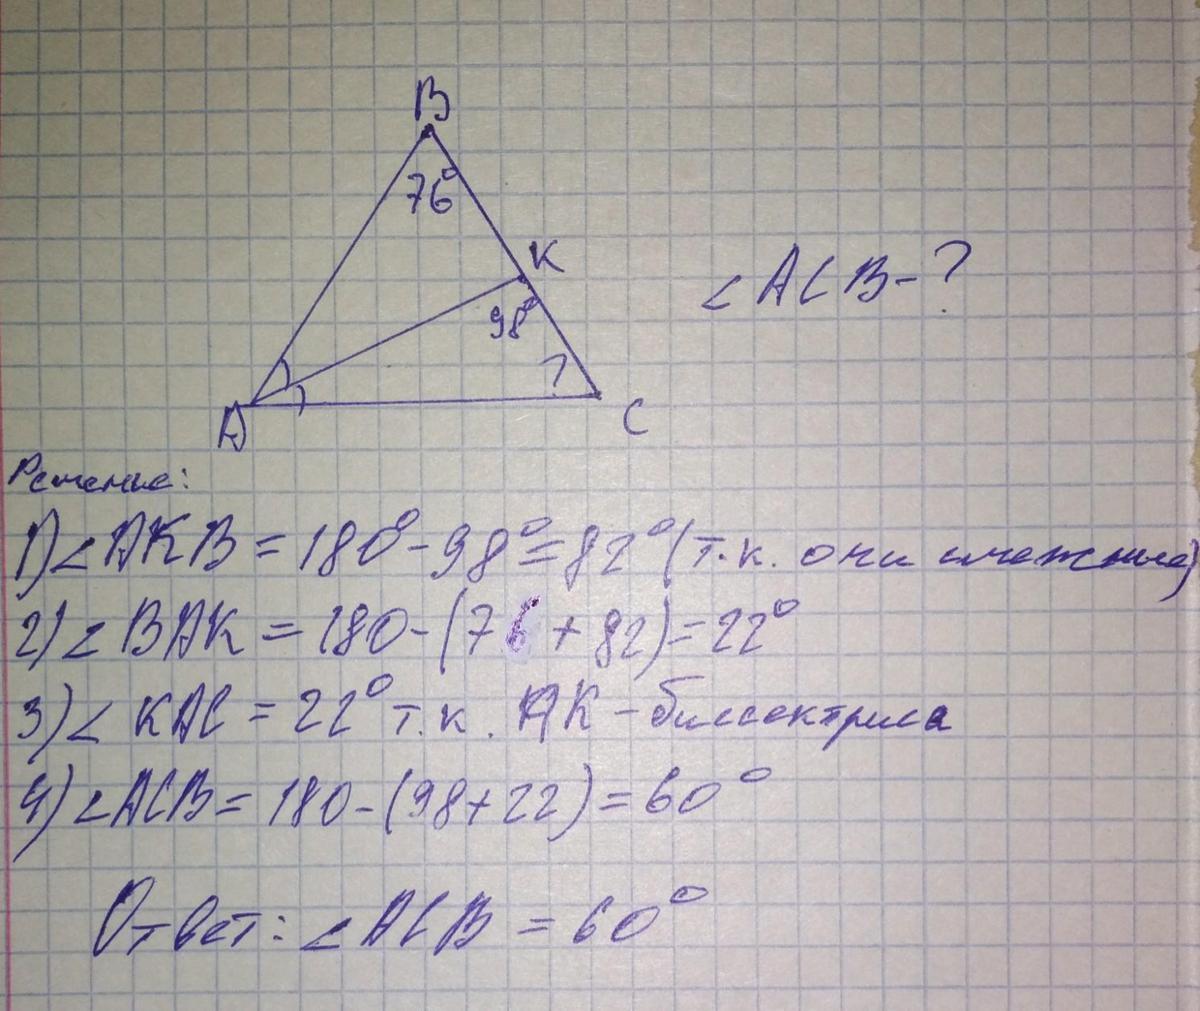 B
76°
K
98°
∠ACB-?
?
A
C
Решение:
1) ∠AKB = 180° - 98° = 82° (т.к. они смежные)
2) ∠BAK = 180 - (76 + 82) = 22°
3) ∠KAC = 22° т.к. AK - биссектриса
4) ∠ACB = 180 - (98 + 22) = 60°
Ответ: ∠ACB = 60°